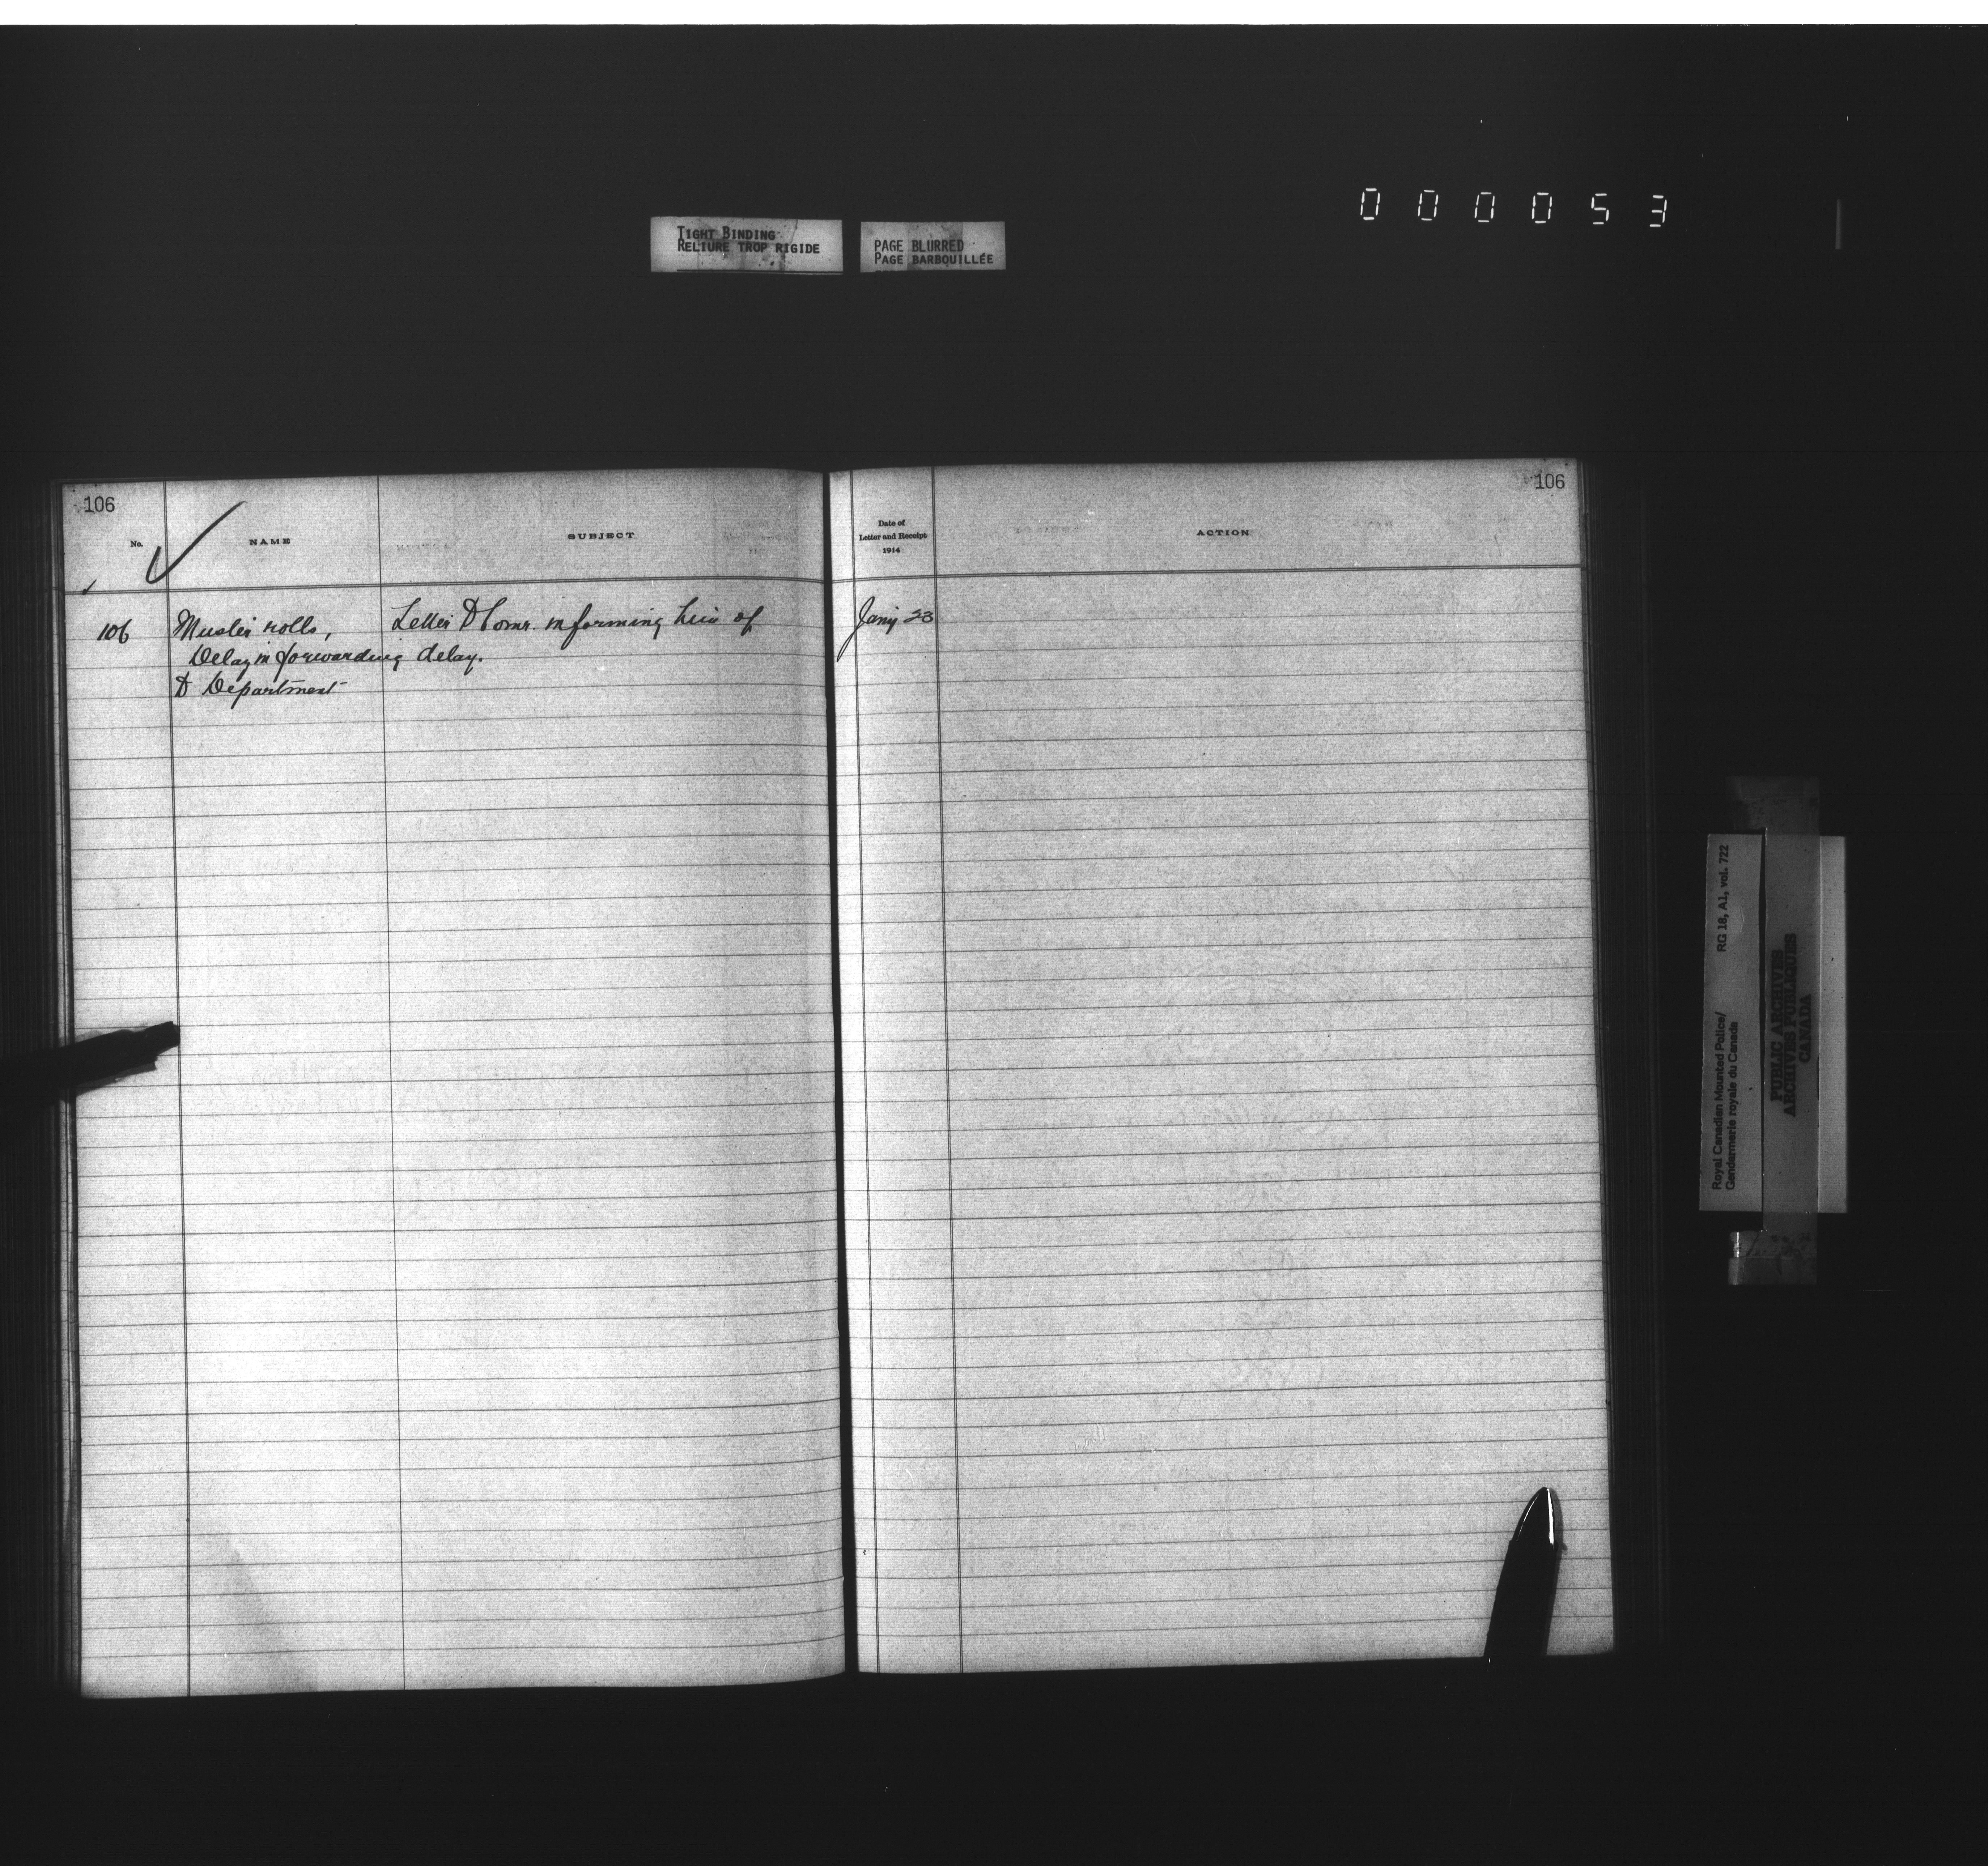 000053
TIGHT BINDING
RELIURE TROP RIGIDE
PAGE BLURRED
PAGE BARBOUILLÉE
106
106
No.
NAME
SUBJECT
Date of
Letter and Receipt
1914
ACTION
106
Muster rolls,
Delay in forwarding
to Department
Letter to Comr. informing him of
delay.
Jany 23
Royal Canadian Mounted Police/
Gendarmerie royale du Canada
RG 18, A1, vol. 722
PUBLIC ARCHIVES
ARCHIVES PUBLIQUES
CANADA